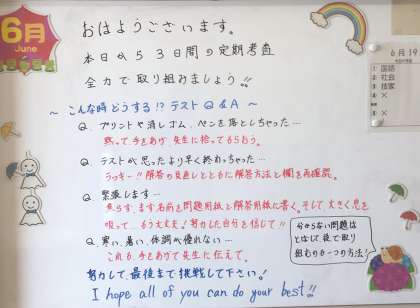 6月
June
おはようございます。
本日から3日間の定期考査
全力で取り組みましょう!!
～こんな時どうする!?テストQ&A～
Q.プリントや消しゴム、ペンを落としちゃった…
黙って手をあげ、先生に拾ってもらおう。
Q.テストが思ったより早く終わっちゃった…
ラッキー!!解答の見直しとともに解答方法と欄を再確認。
Q.緊張します…
焦らず、まず名前を問題用紙と解答用紙に書く。そして、大きく息を
吸って…もう大丈夫!努力した自分を信じて!!
Q.寒い、暑い、体調が優れない…
これも、手をあげて先生に伝えて。
努力して、最後まで挑戦して下さい!
I hope all of you can do your best!!
分からない問題は
とばして、後で取り
組むのも一つの方法!
6月19
①国語
②社会
③技家
④×
×